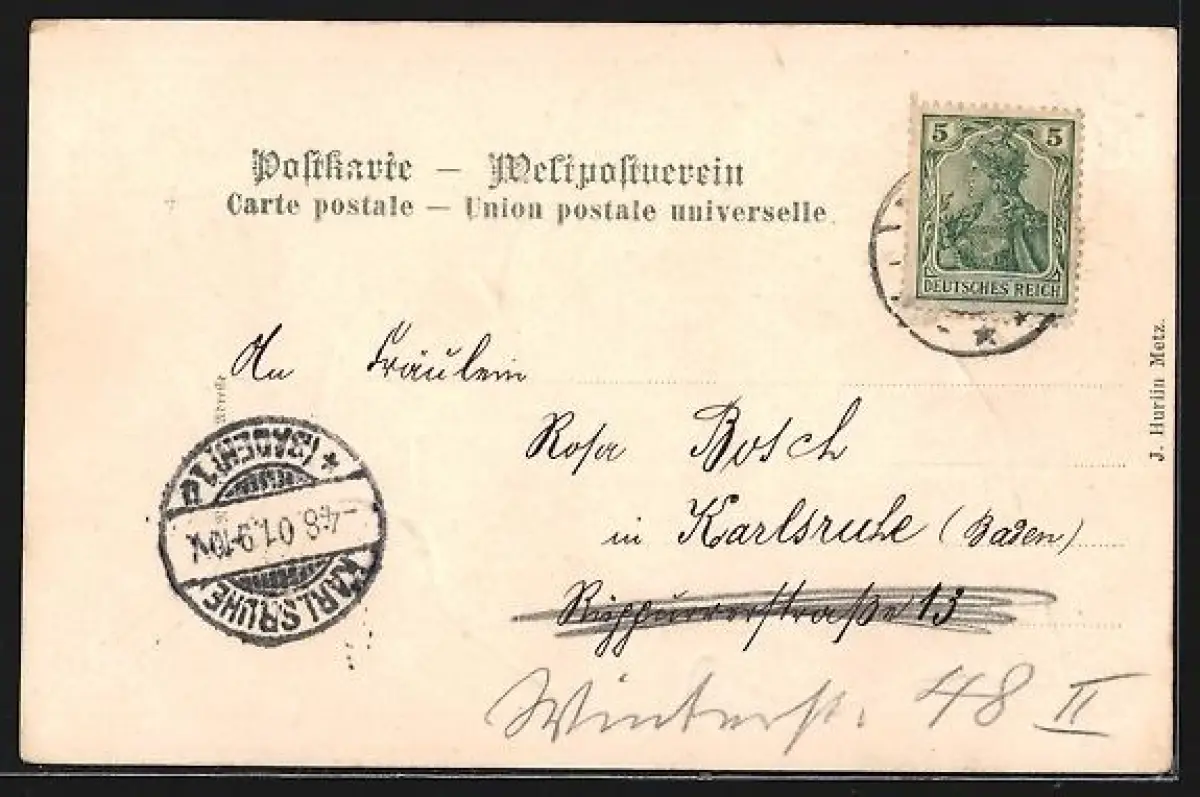 Postkarte — Weltpostverein
Carte postale — Union postale universelle
5 5
DEUTSCHES REICH
J. Hurlin Metz.
An Fräulein
Rosa Bosch
in Karlsruhe (Baden)
Rüppurrerstraße 13
Winterst. 48 II
KARLSRUHE
-4.8.01.9-10V.
(BADEN)1